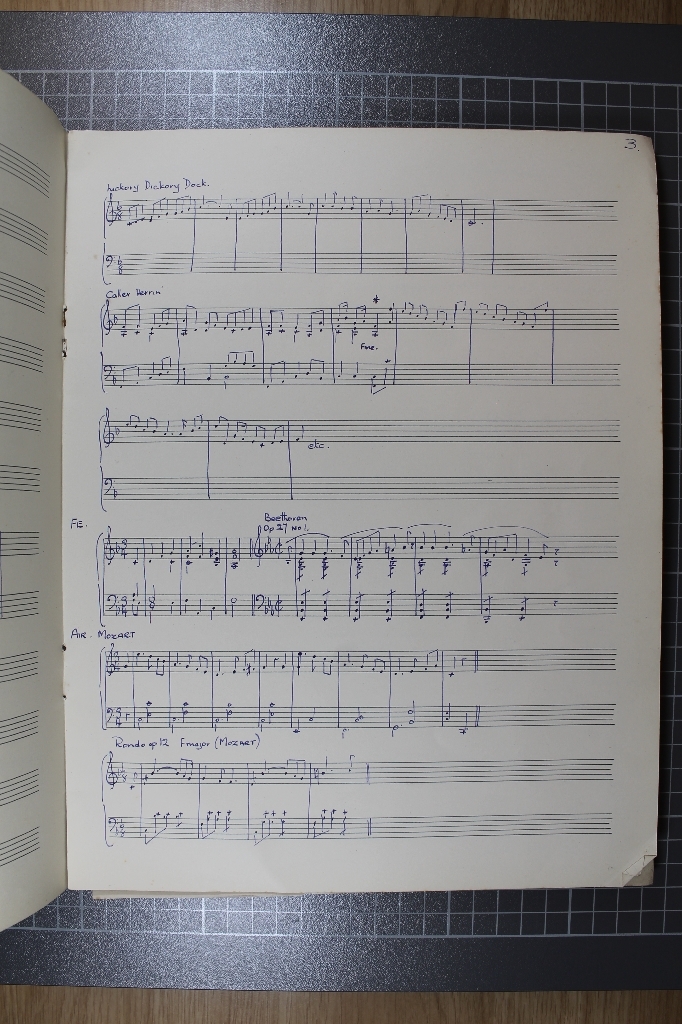 3.
Hickory Dickory Dock.
Caller Herrin'
Fine.
etc.
FE.
Beethoven
Op 27 No 1.
AIR - MOZART
Rondo op 12 F major (MOZART)